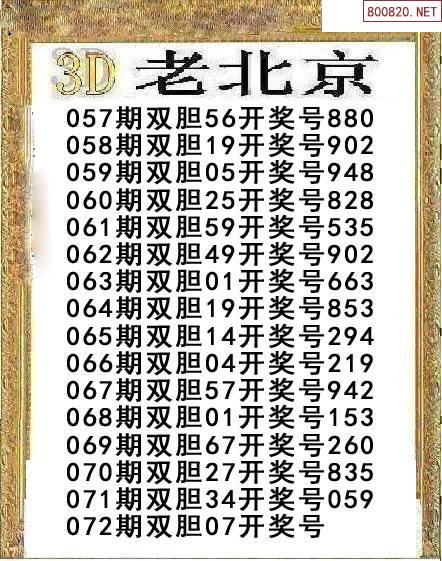 800820.NET
3D 老北京
057期双胆56开奖号880
058期双胆19开奖号902
059期双胆05开奖号948
060期双胆25开奖号828
061期双胆59开奖号535
062期双胆49开奖号902
063期双胆01开奖号663
064期双胆19开奖号853
065期双胆14开奖号294
066期双胆04开奖号219
067期双胆57开奖号942
068期双胆01开奖号153
069期双胆67开奖号260
070期双胆27开奖号835
071期双胆34开奖号059
072期双胆07开奖号